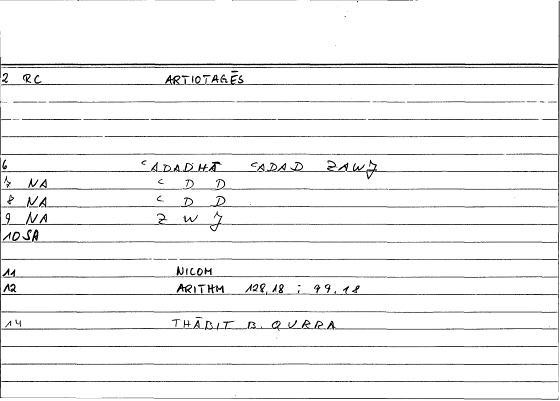 2 RC ARTIOTAGĒS
6 ʿADADHĀ ʿADAD ZAWJ
7 NA ʿ D D
8 NA ʿ D D
9 NA Z W J
10 SA
11 NICOM
12 ARITHM 128,18 ; 99,18
14 THĀBIT B. QURRA